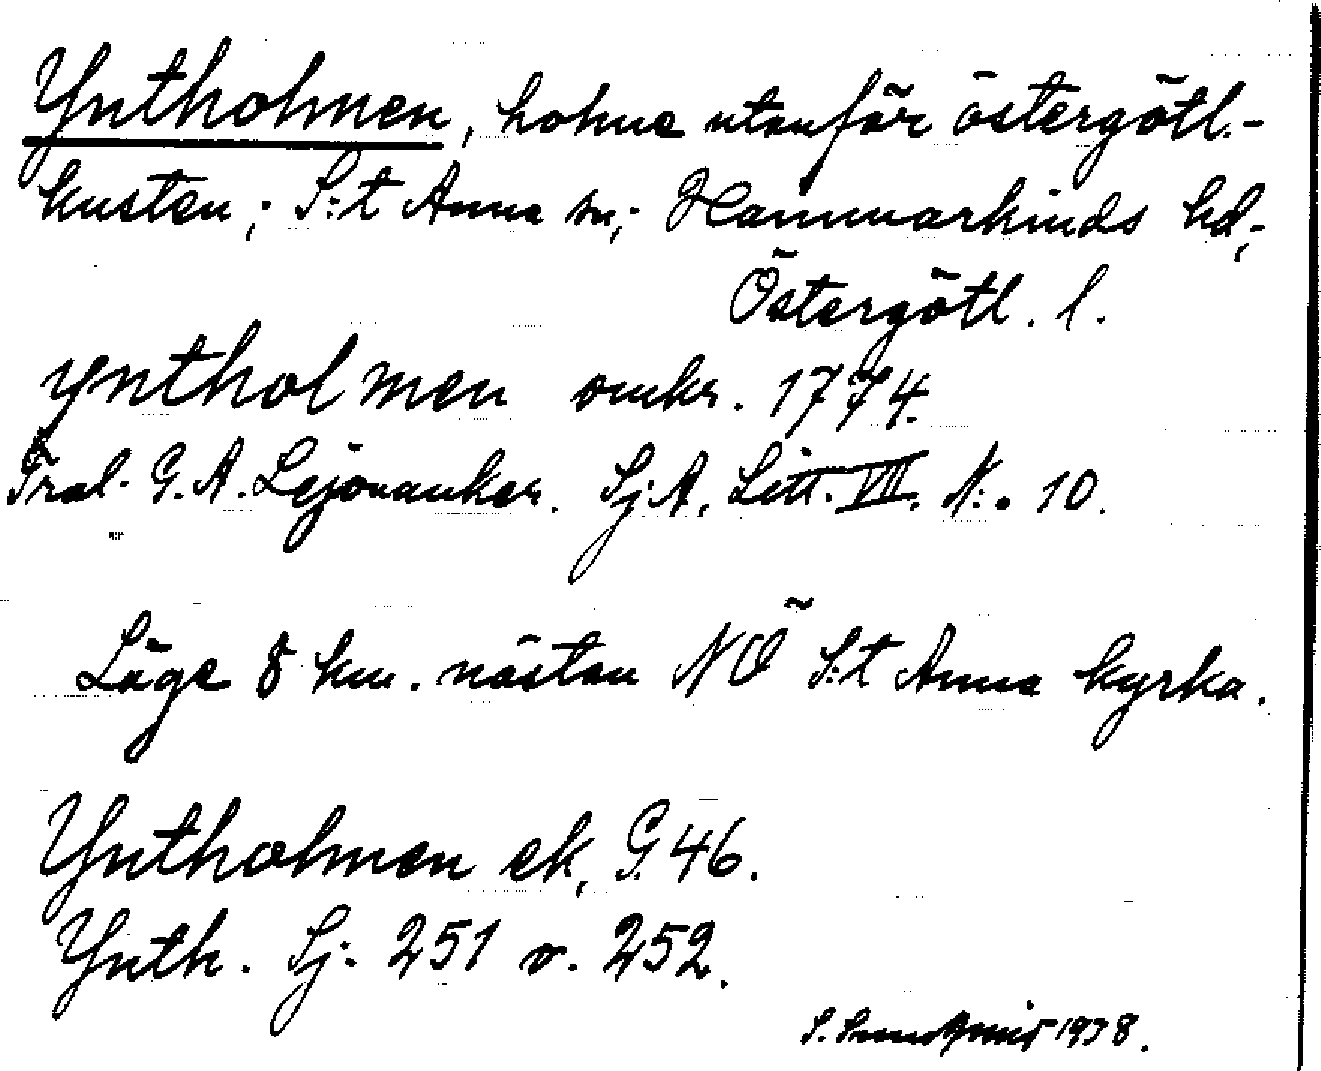 Yntholmen, holme utanför östergötl.-
kusten; S:t Anna sn; Hammarkinds hd,
Östergötl. l.
yntholmen omkr. 1774.
Tral. G. A. Lejonanker. Sj.A. Litt. VIII. N:o 10.
Läge 8 km. nästan NÖ S:t Anna kyrka.
Yntholmen ek, G. 46.
Ynth. Sj. 251 o. 252.
S. 1938.